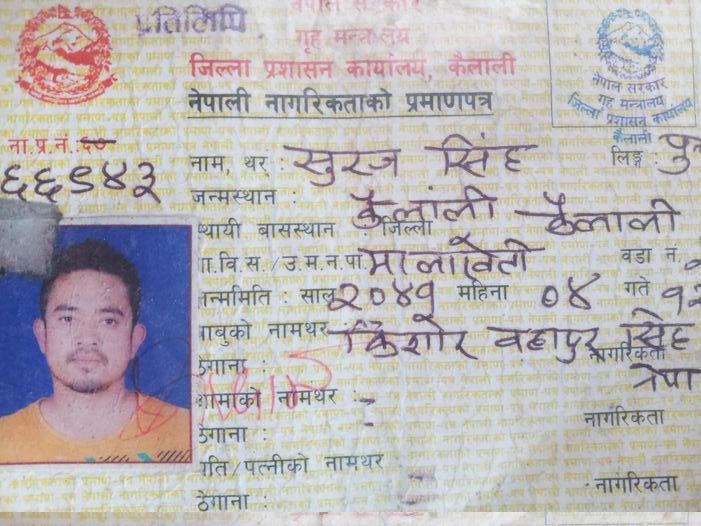 प्रतिलिपि
नेपाल सरकार
गृह मन्त्रालय
जिल्ला प्रशासन कार्यालय, कैलाली
नेपाली नागरिकताको प्रमाणपत्र
नेपाल सरकार
गृह मन्त्रालय
जिल्ला प्रशासन कार्यालय
कैलाली
ना.प्र.नं.:६७-
नाम, थर : सुरज सिंह लिङ्ग : पु
जन्मस्थान : कैलाली
थायी बासस्थान : जिल्ला कैलाली
गा.वि.स./उ.म.न.पा मालाखेती वडा नं.
न्ममिति : साल २०४९ महिना ०४ गते १२
बाबुको नामथर किशोर वहादुर सिंह
ठेगाना : नागरिकता नेपा
आमाको नामथर : -
ठेगाना : नागरिकता
पति/पत्नीको नामथर -
ठेगाना : नागरिकता